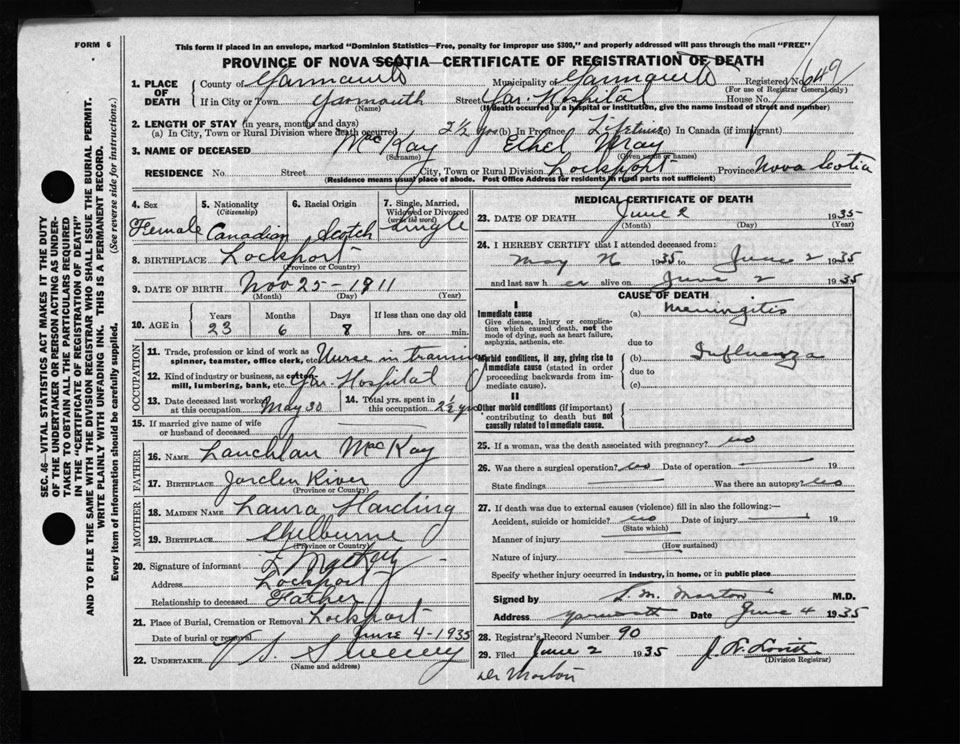 FORM 6
This form if placed in an envelope, marked "Dominion Statistics—Free, penalty for improper use $300," and properly addressed will pass through the mail "FREE"
PROVINCE OF NOVA SCOTIA—CERTIFICATE OF REGISTRATION OF DEATH
1. PLACE OF DEATH County of Yarmouth Municipality of Yarmouth Registered No. 649
(For use of Registrar General only)
If in City or Town Yarmouth Street Yar. Hospital House No.
(Name) (If death occurred in a hospital or institution, give the name instead of street and number)
2. LENGTH OF STAY (in years, months and days)
(a) In City, Town or Rural Division where death occurred 2½ yrs (b) In Province Lifetime (c) In Canada (if immigrant)
3. NAME OF DECEASED MacKay Ethel May
(Surname) (Given name or names)
RESIDENCE No. Street City, Town or Rural Division Lockport Province Nova Scotia
(Residence means usual place of abode. Post Office Address for residents in rural parts not sufficient)
SEC. 46—VITAL STATISTICS ACT MAKES IT THE DUTY
OF THE UNDERTAKER OR PERSON ACTING AS UNDER-
TAKER TO OBTAIN ALL THE PARTICULARS REQUIRED
IN THE "CERTIFICATE OF REGISTRATION OF DEATH"
AND TO FILE THE SAME WITH THE DIVISION REGISTRAR WHO SHALL ISSUE THE BURIAL PERMIT.
WRITE PLAINLY WITH UNFADING INK. THIS IS A PERMANENT RECORD.
Every item of information should be carefully supplied. (See reverse side for instructions.)
4. Sex 5. Nationality (Citizenship) 6. Racial Origin 7. Single, Married, Widowed or Divorced (write the word)
Female Canadian Scotch Single
8. BIRTHPLACE Lockport
(Province or Country)
9. DATE OF BIRTH Nov 25 - 1911
(Month) (Day) (Year)
10. AGE in Years Months Days If less than one day old
23 6 8 hrs. or min.
OCCUPATION
11. Trade, profession or kind of work as spinner, teamster, office clerk, etc. Nurse in training
12. Kind of industry or business, as cotton-mill, lumbering, bank, etc. Yar. Hospital
13. Date deceased last worked at this occupation May 30 14. Total yrs. spent in this occupation 2½ yrs
15. If married give name of wife or husband of deceased
FATHER
16. NAME Lauchlan MacKay
17. BIRTHPLACE Jordan River
(Province or Country)
MOTHER
18. MAIDEN NAME Laura Harding
19. BIRTHPLACE Shelburne
(Province or Country)
20. Signature of informant L MacKay
Address Lockport
Relationship to deceased Father
21. Place of Burial, Cremation or Removal Lockport
Date of burial or removal June 4-1935
22. UNDERTAKER V S Sweeny
(Name and address)
MEDICAL CERTIFICATE OF DEATH
23. DATE OF DEATH June 2 1935
(Month) (Day) (Year)
24. I HEREBY CERTIFY that I attended deceased from:
May 1935 to June 2 1935
and last saw h er alive on June 2 1935
CAUSE OF DEATH
I
Immediate cause (a) Meningitis
Give disease, injury or complication which caused death, not the mode of dying, such as heart failure, asphyxia, asthenia, etc.
due to
Morbid conditions, if any, giving rise to immediate cause (stated in order proceeding backwards from immediate cause). (b) Influenza
due to
(c)
II
Other morbid conditions (if important) contributing to death but not causally related to immediate cause.
25. If a woman, was the death associated with pregnancy? no
26. Was there a surgical operation? no Date of operation 19
State findings Was there an autopsy? no
27. If death was due to external causes (violence) fill in also the following:—
Accident, suicide or homicide? no Date of injury 19
(State which)
Manner of injury
(How sustained)
Nature of injury
Specify whether injury occurred in industry, in home, or in public place
Signed by L. M. Morton M.D.
Address Yarmouth Date June 4 1935
28. Registrar's Record Number 90
29. Filed June 2 1935
(Division Registrar)
Dr Morton